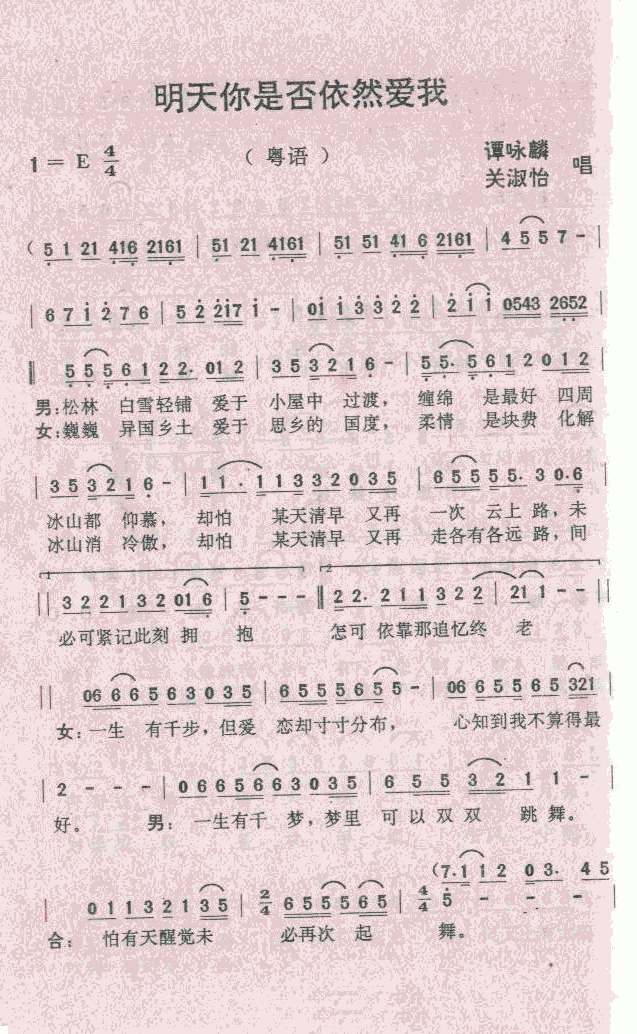 明天你是否依然爱我
1 = E 4/4 （ 粤语 ） 谭咏麟 关淑怡 唱
( 5 1 21 416 2161 | 51 21 4161 | 51 51 41 6 2161 | 4 5 5 7 - |
| 6 7 1 2 7 6 | 5 2 217 1 - | 01 1 3 3 2 2 | 2 1 1 0543 2652 |
‖ 5 5 5 6 1 2 2· 01 2 | 3 5 3 2 1 6 - | 5 5· 5 6 1 2 0 1 2 |
男：松林 白雪轻铺 爱于 小屋中 过渡， 缠绵 是最好 四周
女：巍巍 异国乡土 爱于 思乡的 国度， 柔情 是块费 化解
| 3 5 3 2 1 6 - | 1 1 · 1 1 3 3 2 0 3 5 | 6 5 5 5 5 5· 3 0·6 |
冰山都 仰慕， 却怕 某天清早 又再 一次 云上 路，未
冰山消 冷傲， 却怕 某天清早 又再 走各有各远 路，间
1 2
‖ 3 2 2 1 3 2 01 6 | 5 - - - ‖ 2 2· 2 1 1 3 2 2 | 21 1 - - ‖
必可紧记此刻 拥 抱 怎可 依靠那追忆终 老
‖ 06 6 6 5 6 3 0 3 5 | 6 5 5 5 6 5 5 - | 06 6 5 5 6 5 321 |
女：一生 有千步，但爱 恋却寸寸分布， 心知到我不算得最
| 2 - - - | 0 6 6 5 6 6 3 0 3 5 | 6 5 5 3 2 1 1 - |
好。 男： 一生有千 梦，梦里 可 以 双 双 跳 舞。
(7·1 1 2 0 3· 4 5
| 0 1 1 3 2 1 3 5 | 2/4 6 5 5 5 6 5 | 4/4 5 - - - |
合： 怕有天醒觉未 必再次 起 舞。